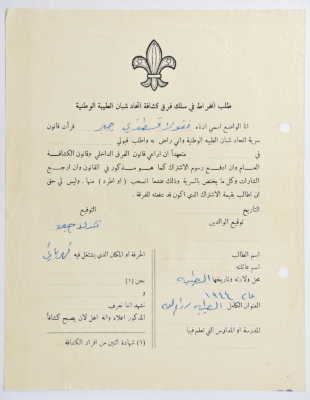 طلب انخراط في سلك فرق كشافة اتحاد شبان الطيبة الوطنية
انا الواضع اسمي ادناه قسطندي جبر قرأت قانون
سرية اتحاد شبان الطيبة الوطنية واني راض به واطلب قبولي
في متعهداً ان اراعي قانون الفرق الداخلي وقانون الكشافة
العام وان ادفع رسوم الاشتراك كما هو مذكور في القانون وان ارجع
الشارات وكل ما يختص بالسرية وذلك عندما انسحب (او اطرد) منها . وليس لي حق
ان اطالب بقيمة الاشتراك الذي اكون قد دفعته للفرقة .
التاريخ
التوقيع
توقيع الوالدين
اسم الطالب
اسم عائلته
محل ولادته وتاريخها الطيبة
عام ١٩٤٤
العنوان الكامل الطيبة رام الله
المدرسة او المدارس التي تعلم فيها
الحرفة او المكان الذي يشتغل فيه كهربائي
نحن (١)
و
نشهد اننا نعرف
المذكور اعلاه وانه اهل لان يصبح كشافاً
(١) شهادة اثنين من افراد الكشافة .